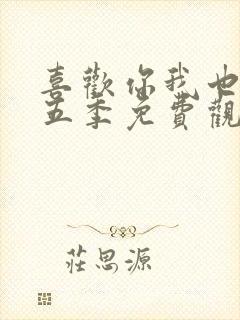 喜歡你我也
五季免費觀
莊思源